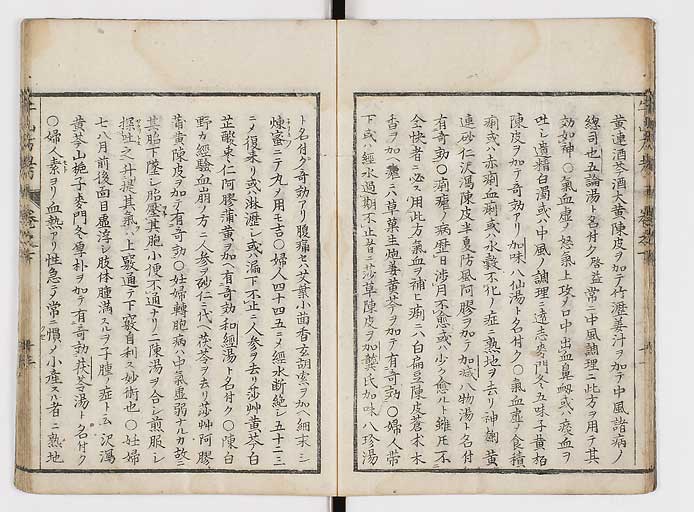 黄連酒芩酒大黄陳皮ヲ加テ竹瀝姜汁ヲ加テ中風諸病ノ
總司也五論湯ト名付ク啓益常ニ中風調理ニ此方ヲ用テ其
効如神〇氣血虚ノ怒氣上攻ノ口中出血鼻衂或ハ痰血ヲ
吐シ遺精白濁或ハ中風ノ調理ニ遠志麥門冬五味子黄栢
陳皮ヲ加テ奇効アリ加味八仙湯ト名付ク〇氣血虚ノ食積
痢或ハ赤痢血痢或ハ水穀不化ノ症ニ熟地ヲ去リ神麹黄
連砂仁沢瀉陳皮半夏防風阿膠ヲ加テ加減八物湯ト名付
有奇効〇痢瘧ノ病歴日渉月不愈或ハ少ク愈ルト雖圧不
全快者ニ必ス用此方氣血ヲ補ヒ痢ニハ白扁豆陳皮蒼朮木
香ヲ加ヘ瘧ニハ草菓生炮姜黄芩ヲ加テ有奇効〇婦人帶
下或ハ經水過期不止者ニ莎草陳皮ヲ加龔氏加味八珍湯
ト名付ク奇効アリ腹痛セハ艾葉小茴香玄胡索ヲ加ヘ細末シ
煉蜜ニテ丸ノ用モ吉〇婦人四十四五ニノ經水断絶シ五十二三
ニノ復来リ或ハ淋瀝シ或ハ漏下不止ニ人参ヲ去リ莎艸黄芩白
芷酸棗仁阿膠蒲黄ヲ加テ有奇効和經湯ト名付ク〇陳白
野カ經驗血崩ノ方ニ人参ヲ砂仁ニ代ヘ茯苓ヲ去リ莎艸阿膠
蒲黄陳皮ヲ加テ有奇効〇妊婦轉胞病ハ中氣虚弱ナルカ故ニ
其胎下墜シ胎壓其胞小便不通ナリ二陳湯ヲ合シ煎服シ
探吐之升提其氣ハ上竅通テ下竅自利ス妙術也〇妊婦
七八月前後面目虚浮シ肢体腫満スルヲ子腫ノ症ト云沢瀉
黄芩山梔子麥門冬厚朴ヲ加テ有奇効茯苓湯ト名付ク
〇婦人素ヨリ血熱アリ性急ニノ常ニ慣ノ小産スル者ニ熟地